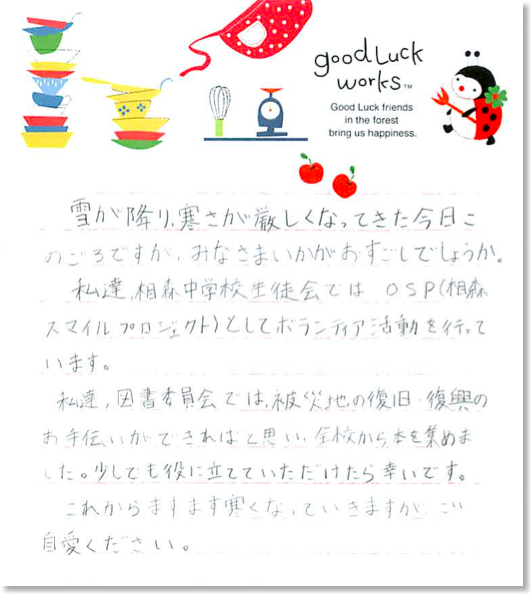 good Luck
works™
Good Luck friends
in the forest
bring us happiness.
雪が降り、寒さが厳しくなってきた今日こ
のごろですが、みなさまいかがおすごしでしょうか。
私達、相森中学校生徒会では OSP(相森
スマイルプロジェクト)としてボランティア活動を行って
います。
私達、図書委員会では、被災地の復旧・復興の
お手伝いができればと思い、全校から本を集めま
した。少しでも役に立てていただけたら幸いです。
これからますます寒くなっていきますが、ご
自愛ください。